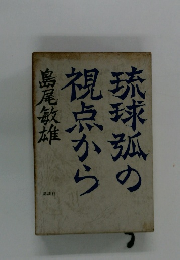 琉球弧の
視点から
島尾敏雄